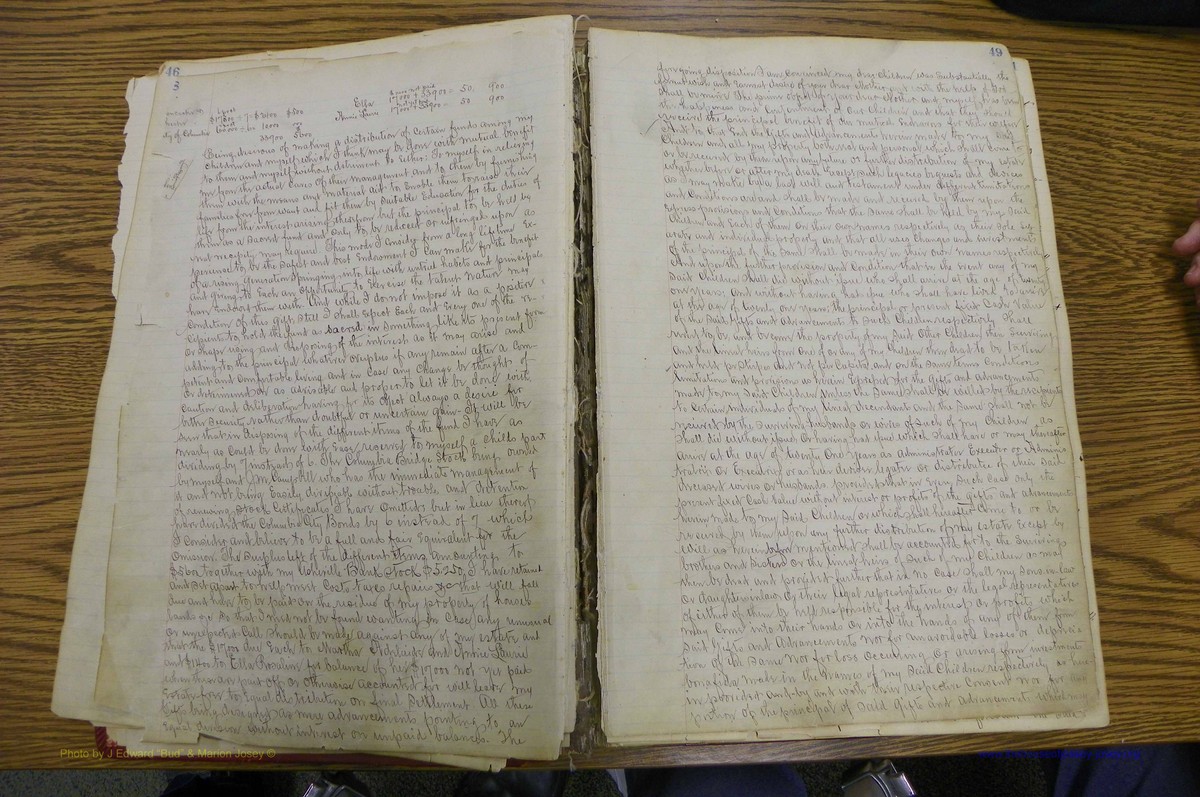 46
3
Being desirous of making a distribution of Certain funds among my
Children and myself which I think may be done with mutual benefit
to them and myself without detriment to Either: To myself in relieving
me from the actual Cares of their management and to them by furnishing
them with the means and material aid to Enable them to raise their
families free from want and fit them by Suitable Education for the duties of
life from the interest arising therefrom but the principal to be held by
them as a Sacred fund and only to be reduced or infringed upon as
necessity may require. This mode I consider from a long lifetime Ex-
perience to be the Safest and best Endowment I Can make for the benefit
of a rising Generation Springing into life with untried habits and principals
and giving to Each an opportunity to Exercise the talents nature may
have Endowed them with. And while I do not impose it as a positive
Condition of this Gift Still I shall Expect Each and Every one of the re-
cipients to hold the fund as sacred in Something like its present form
or shape using and disposing of the interest as it may accrue and
adding to the principal whatever surplus if any remain after a Com-
petent and Comfortable living and in case any Change be thought of
or determined on as advisable and proper to let it be done with
Caution and deliberation having for its object always a desire for
better Security rather than doubtful or uncertain gain. It will be
seen that in disposing of the different items of the fund I have as
nearly as Could be done reserved to myself a Childs part
dividing by 7 instead of 6. The Columbia Bridge Stock being owned
by myself and J. M. Campbell who has the immediate management of
it and not being Easily divisible without trouble and detention
of renewing Stock Certificates I have omitted but in lieu thereof
have divided the Columbia City Bonds by 6 instead of 7 which
I Consider and believe to be a full and fair Equivalent for the
omission. The Surplus left of the different items amounting to
together with my Bank Stock $5.250 I have retained
and Set apart to meet Costs taxes repairs &c that will fall
due and have to be paid on the residue of my property of houses
lands &c So that I must not be found wanting in Case any unusual
or unexpected Call should be made against any of my estate and
that the due Each to Martha and Annie Laurie
and to Ella Rosaline for balance of her $17000 not yet paid
when these are paid off or otherwise accounted for will leave my
Estate free to Equal distribution on final Settlement. All these
Gifts being designed as mere advancements pointing to an
Equal division without interest on unpaid balances. The
49
foregoing disposition I am Convinced my dear Children was Substantially the
wish and earnest desire of your dear Mother
Shall be mine. The prime object of your dear Mother and myself has been
the happiness and Contentment of our Children and that they should
receive the principal benefit of our mutual Endeavors for their welfare
And to that End the Gifts and Advancements herein made to my Said
Children and all my property both real and personal which shall Come to
or be received by them upon any future or further distribution of my estate
whether before or after my death Except Such legacies bequests and devises
as I may make by my last will and testament under different limitations
and Conditions are and shall be made and received by them upon the
Express provisions and Conditions that the Same shall be held by my Said
Children and Each of them in their own names respectively as their Sole Sep-
arate and individual property and that all uses Changes and investments
of the principal of the Same shall be made in their own names respectively
And upon the further provision and Condition that in the event any of my
Said Children shall die without issue who shall arrive at the age of twenty
one years and without having had issue who shall have So arrived
at the age of twenty one years the principal or present fixed Cash Value
of the Said Gifts and Advancements to Such Children respectively Shall
revert to be and become the property of my Said other Children then Surviving
and the lineal heirs of any one or of any of my Children then dead to be taken
and held per stirpes and not per Capita, and on the Same terms Conditions
limitations and provisions as herein Expressed for the Gifts and Advancements
made to my Said Children Unless the Same shall be willed by the recipients
to Certain individuals of my lineal descendants and the Same shall not be
received by the Surviving husbands or wives of Such of my Children as
shall die without issue or having had issue which shall have or may thereafter
arrive at the age of twenty one years as administrator Executor or Adminis-
tratrix or Executrix or as heir devisee legatee or distributee of their Said
deceased wives or husbands provided that in Every Such Case only the
present fixed Cash Value without interest or profits of the Gifts and advancements
herein made to my Said Children or which shall hereafter Come to or be
received by them upon any further distribution of my estate Except by
Will as herein before mentioned shall be accounted for to the Surviving
brothers and Sisters or the lineal heirs of Such of my Children as may
then be dead and provided further that in no Case shall my Sons in law
or daughters in law or their legal representatives or the legal representatives
of either of them be held responsible for the interest or profits which
may Come into their hands or into the hands of any of them from
Said Gifts and Advancements nor for unavoidable losses or deprecia-
tion of the Same nor for loss occurring or arising from investments
bona fide made in the names of my Said Children respectively as here-
in provided and by and with their respective Consent nor for any
portion of the principal of Said Gifts and Advancements
Photo by J Edward "Bud" & Marion Josey ©